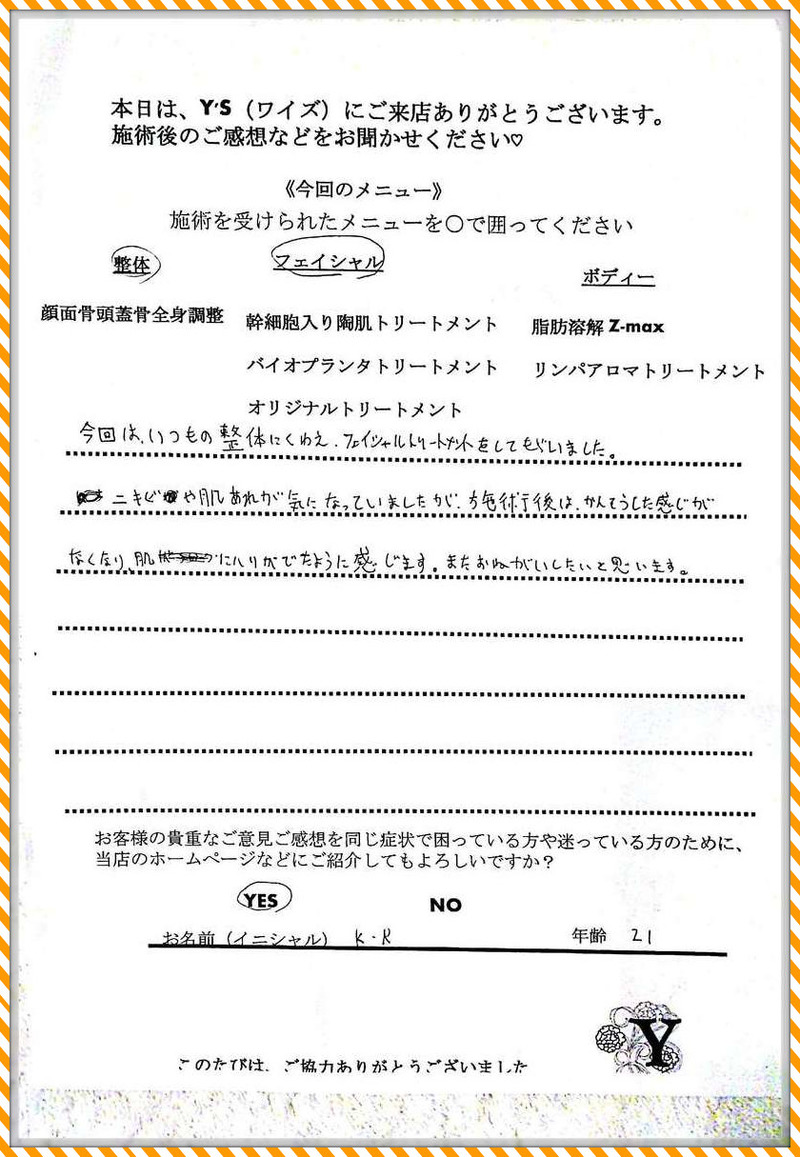 本日は、Y'S（ワイズ）にご来店ありがとうございます。
施術後のご感想などをお聞かせください♡
《今回のメニュー》
施術を受けられたメニューを〇で囲ってください
整体 フェイシャル ボディー
顔面骨頭蓋骨全身調整 幹細胞入り陶肌トリートメント 脂肪溶解 Z-max
バイオプランタトリートメント リンパアロマトリートメント
オリジナルトリートメント
今回は、いつもの整体にくわえ、フェイシャルトリートメントをしてもらいました。
ニキビや肌あれが気になっていましたが、施術後は、かんそうした感じが
なくなり、肌にハリがでたように感じます。またおねがいしたいと思います。
お客様の貴重なご意見ご感想を同じ症状で困っている方や迷っている方のために、
当店のホームページなどにご紹介してもよろしいですか？
YES NO
お名前（イニシャル） K・K 年齢 21
Y
このたびは、ご協力ありがとうございました